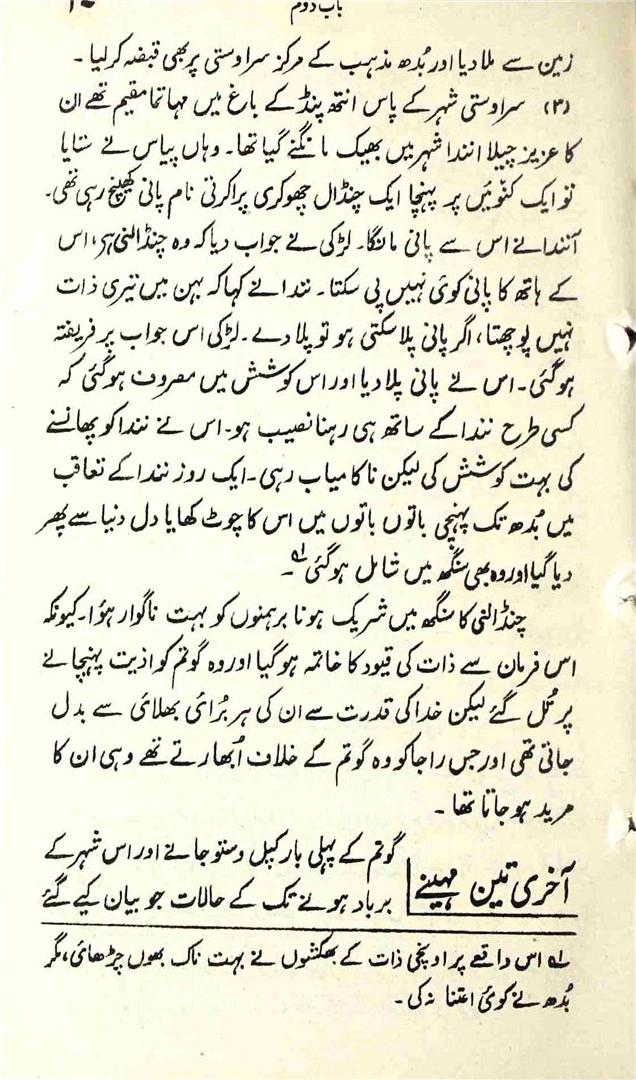 باب دوم
زمین سے ملا دیا اور بُدھ مذہب کے مرکز سراوستی پر بھی قبضہ کر لیا۔
(۳) سراوستی شہر کے پاس انتھ پنڈ کے باغ میں مہاتما مقیم تھے ان
کا عزیز چیلا انندا شہر میں بھیک مانگنے گیا تھا۔ وہاں پیاس نے ستایا
تو ایک کنوئیں پر پہنچا ایک چنڈال چھوکری پراکرتی نام پانی کھینچ رہی تھی۔
آنندا نے اس سے پانی مانگا۔ لڑکی نے جواب دیا کہ وہ چنڈالنی ہے، اس
کے ہاتھ کا پانی کوئی نہیں پی سکتا۔ نندا نے کہا کہ بہن میں تیری ذات
نہیں پوچھتا، اگر پانی پلا سکتی ہو تو پلا دے۔ لڑکی اس جواب پر فریفتہ
ہو گئی۔ اس نے پانی پلا دیا اور اس کوشش میں مصروف ہو گئی کہ
کسی طرح نندا کے ساتھ ہی رہنا نصیب ہو۔ اس نے نندا کو پھانسنے
کی بہت کوشش کی لیکن ناکامیاب رہی۔ ایک روز نندا کے تعاقب
میں بُدھ تک پہنچی باتوں باتوں میں اس کا چوٹ کھایا دل دنیا سے پھر
دیا گیا اور وہ بھی سنگھ میں شامل ہو گئی ۱؎۔
چنڈالنی کا سنگھ میں شریک ہونا برہمنوں کو بہت ناگوار ہؤا۔ کیونکہ
اس فرمان سے ذات کی قیود کا خاتمہ ہو گیا اور وہ گوتم کو اذیت پہنچانے
پر تُل گئے لیکن خدا کی قدرت سے ان کی ہر بُرائی بھلائی سے بدل
جاتی تھی اور جس راجا کو وہ گوتم کے خلاف اُبھارتے تھے وہی ان کا
مرید ہو جاتا تھا۔
آخری تین مہینے
گوتم کے پہلی بار کپل وستو جانے اور اس شہر کے
برباد ہونے تک کے حالات جو بیان کیے گئے
۱؎ اس واقعے پر اونچی ذات کے بھکشوں نے بہت ناک بھوں چڑھائی، مگر
بُدھ نے کوئی اعتنا نہ کی۔